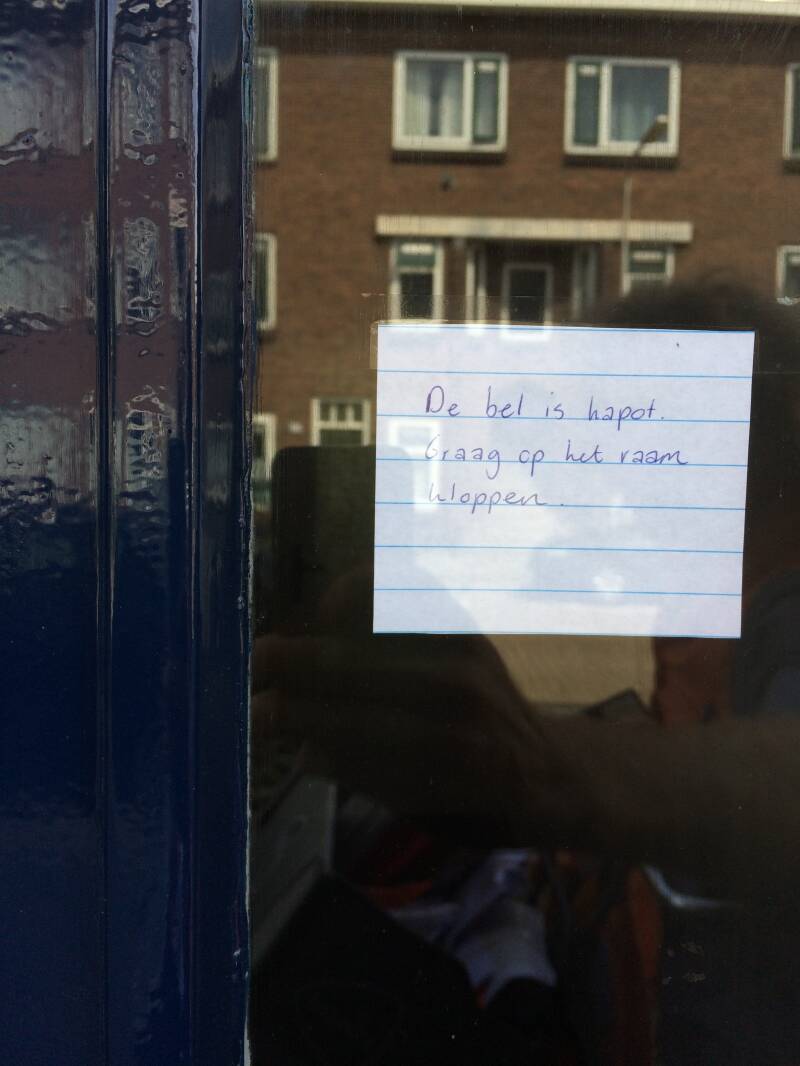 De bel is kapot.
Graag op het raam
kloppen.